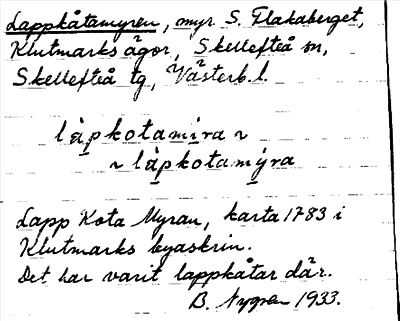 Lappkåtamyren, myr S. Flakaberget,
Klutmarks ägor, Skellefteå sn,
Skellefteå tg, Västerb. l.
làpkotamira ~
~ làpkotamýra
Lapp Kota Myran, karta 1783 i
Klutmarks byaskrin.
Det har varit lappkåtar där.
B. Nygren 1933.